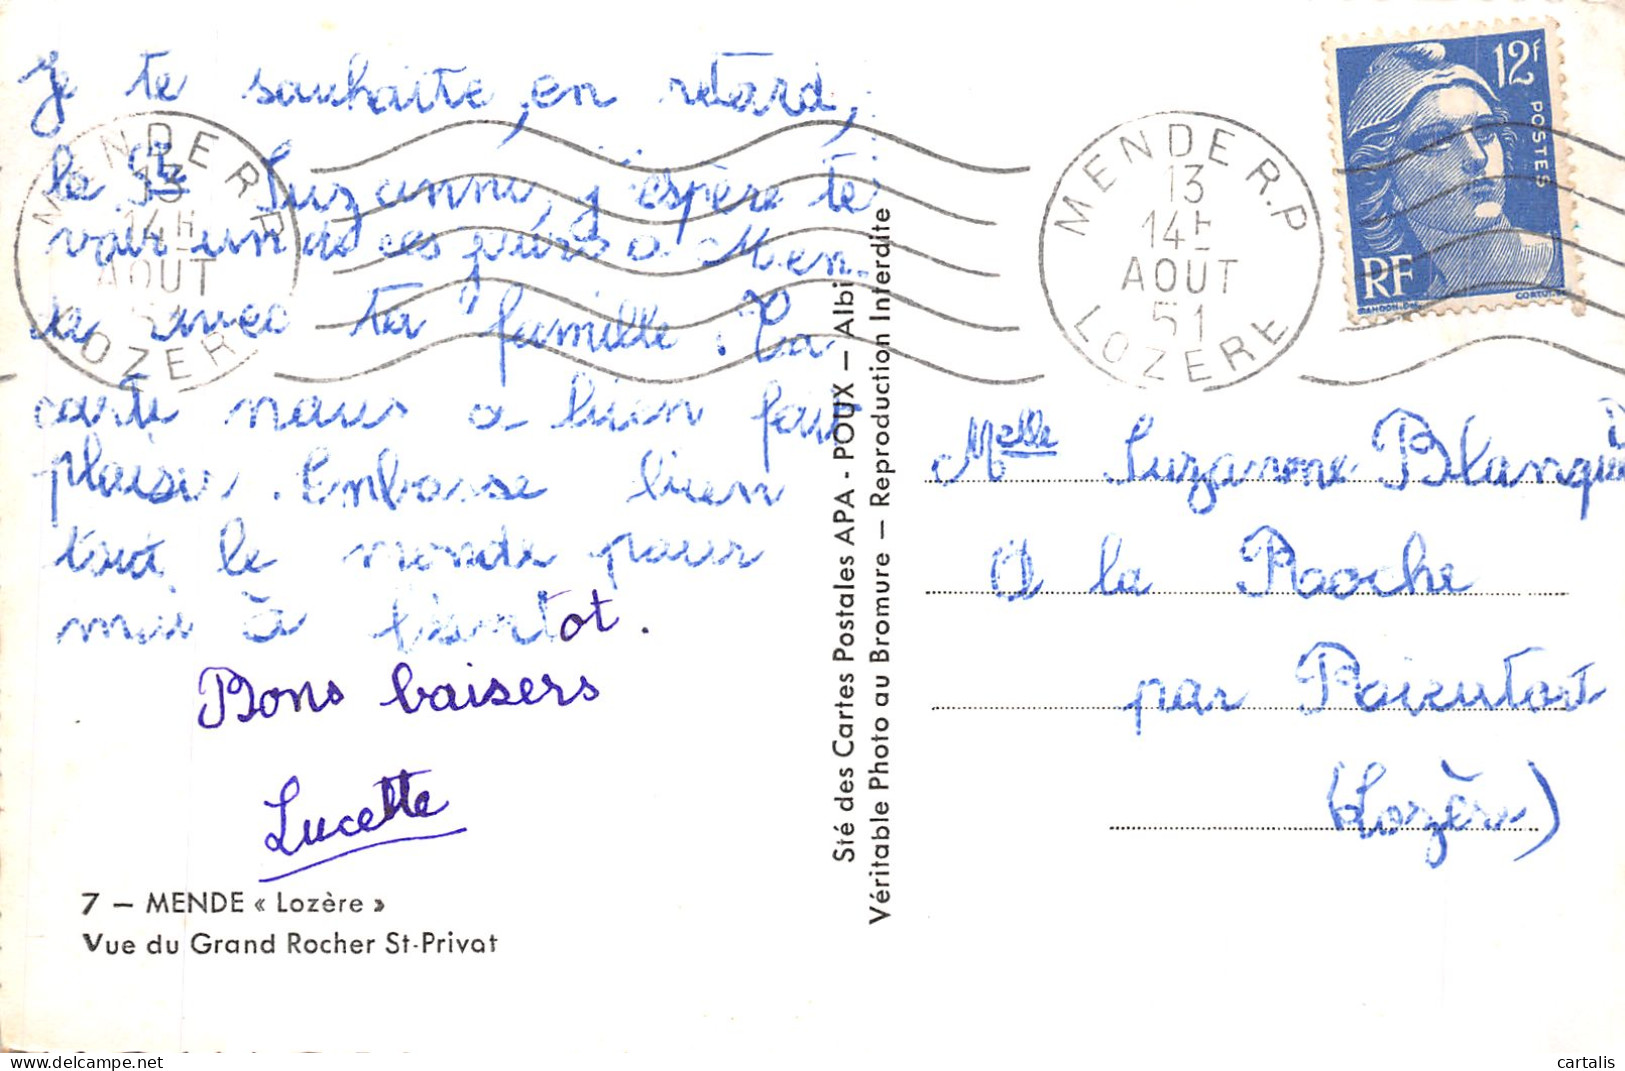 Je te souhaite, en retard,
la Ste Suzanne, j'espère te
voir un de ces jours a Men-
de avec ta famille. La
carte nous a bien fait
plaisir. Embrasse bien
tout le monde pour
moi à bientot.
Bons baisers
Lucette
7 — MENDE « Lozère »
Vue du Grand Rocher St-Privat
Sté des Cartes Postales APA - POUX — Albi
Véritable Photo au Bromure — Reproduction Interdite
MENDE R.P
13
14H
AOUT
LOZERE
MENDE R.P
13
14H
AOUT
51
LOZERE
12F
POSTES
RF
GANDON
CORTOT
Melle Suzanne
A la Raoche
par
(Lozère)
cartalis